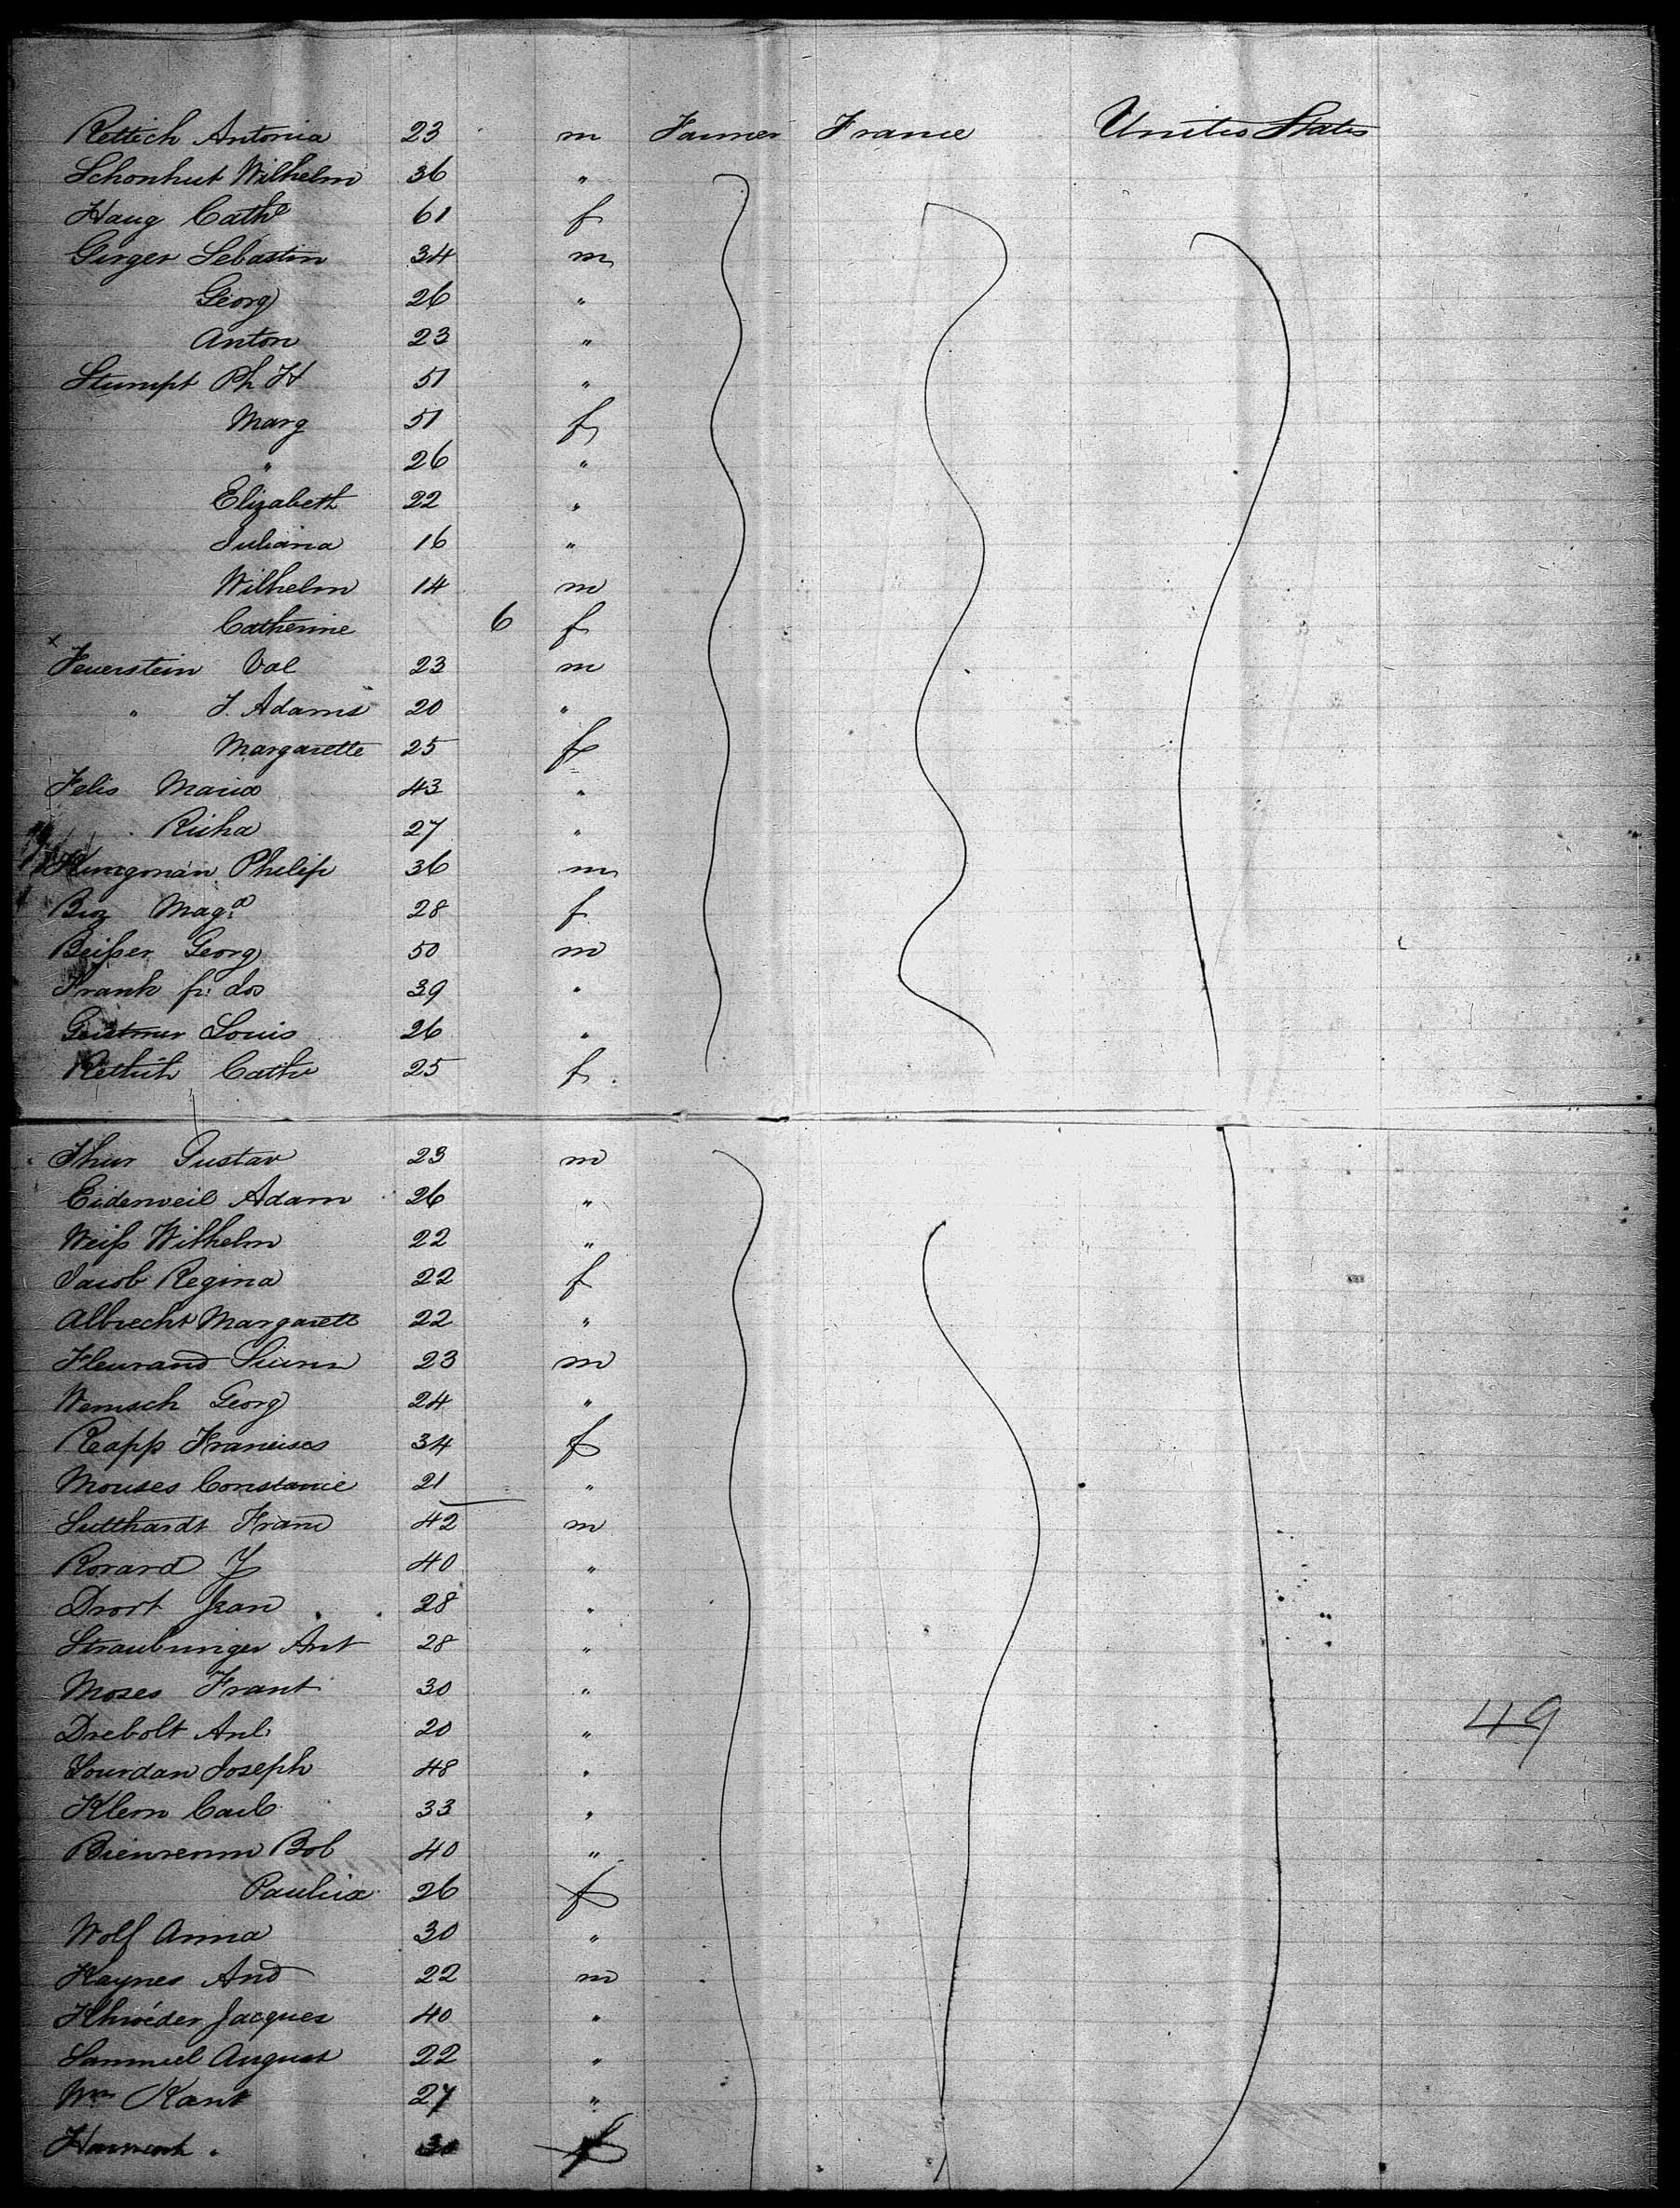 Rettich Antonia 23 m Farmer France United States
Schonhut Wilhelm 36 "
Haug Cath 61 f
Girger Sebastin 34 m
Georg 26 "
Anton 23 "
Stumpt Ph H 51 "
Marg 51 f
" 26 "
Elizabeth 22 "
Juliana 16 "
Wilhelm 14 m
Catherine 6 f
x Feuerstein Val 23 m
" J. Adams 20 "
Margarette 25 f
Felis Maria 43 "
27 "
Philip 36 m
Mag.a 28 f
Beißer Georg 50 m
Frank 39 "
Louis 26 "
Cath 25 f
Thur Gustav 23 m
Eidenweil Adam 26 "
Weiß Wilhelm 22 "
Jacob Regina 22 f
Albrecht Margarett 22 "
Fleurand 23 m
Wemsch Georg 24 "
Rapp Francisca 34 f
Mouses Constance 21 "
Lutthardt Franc 42 m
Rorard J 40 "
Drort Jean 28 "
Straubinger Ant 28 "
Moses Frant 30 "
Drebolt 20 "
49
Jourdan Joseph 48 "
Klem Carl 33 "
Bienvenm Bob 40 "
26 f
Wolf Anna 30 "
Haynes And 22 m
Jacques 40 "
Sammuel August 22 "
Wm Kant 27 "
f